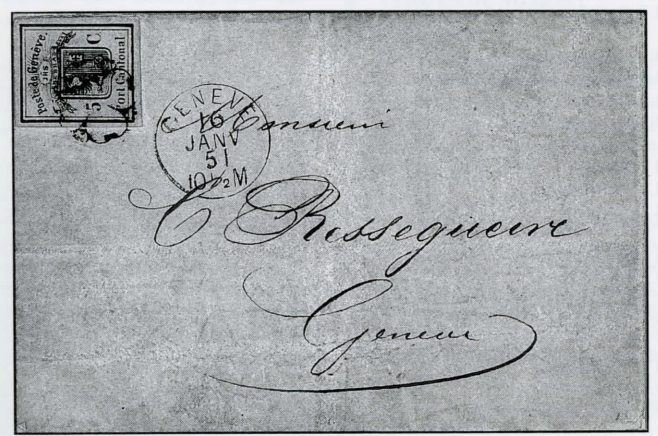 Poste de Genève.
5 C
Port Cantonal
GENEVE
16
JANV
51
10½M
Monsieur
C Resseguerre
Geneve